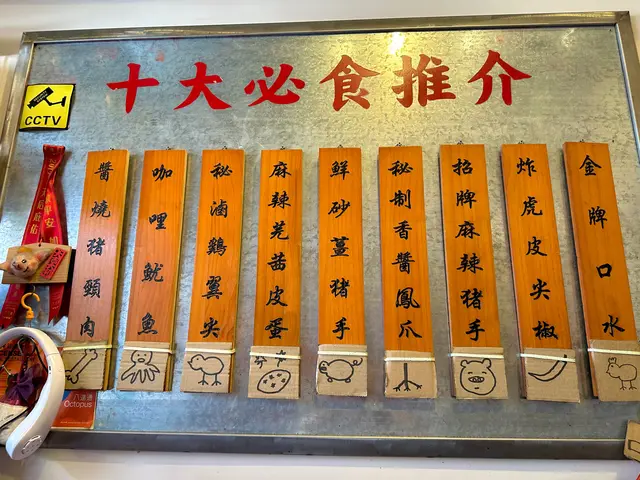 十大必食推介
CCTV
醬燒猪頸肉
咖哩魷魚
秘滷鷄翼尖
麻辣芫茜皮蛋
鮮砂薑猪手
秘制香醬鳳爪
招牌麻辣猪手
炸虎皮尖椒
金牌口水
八達通
Octopus